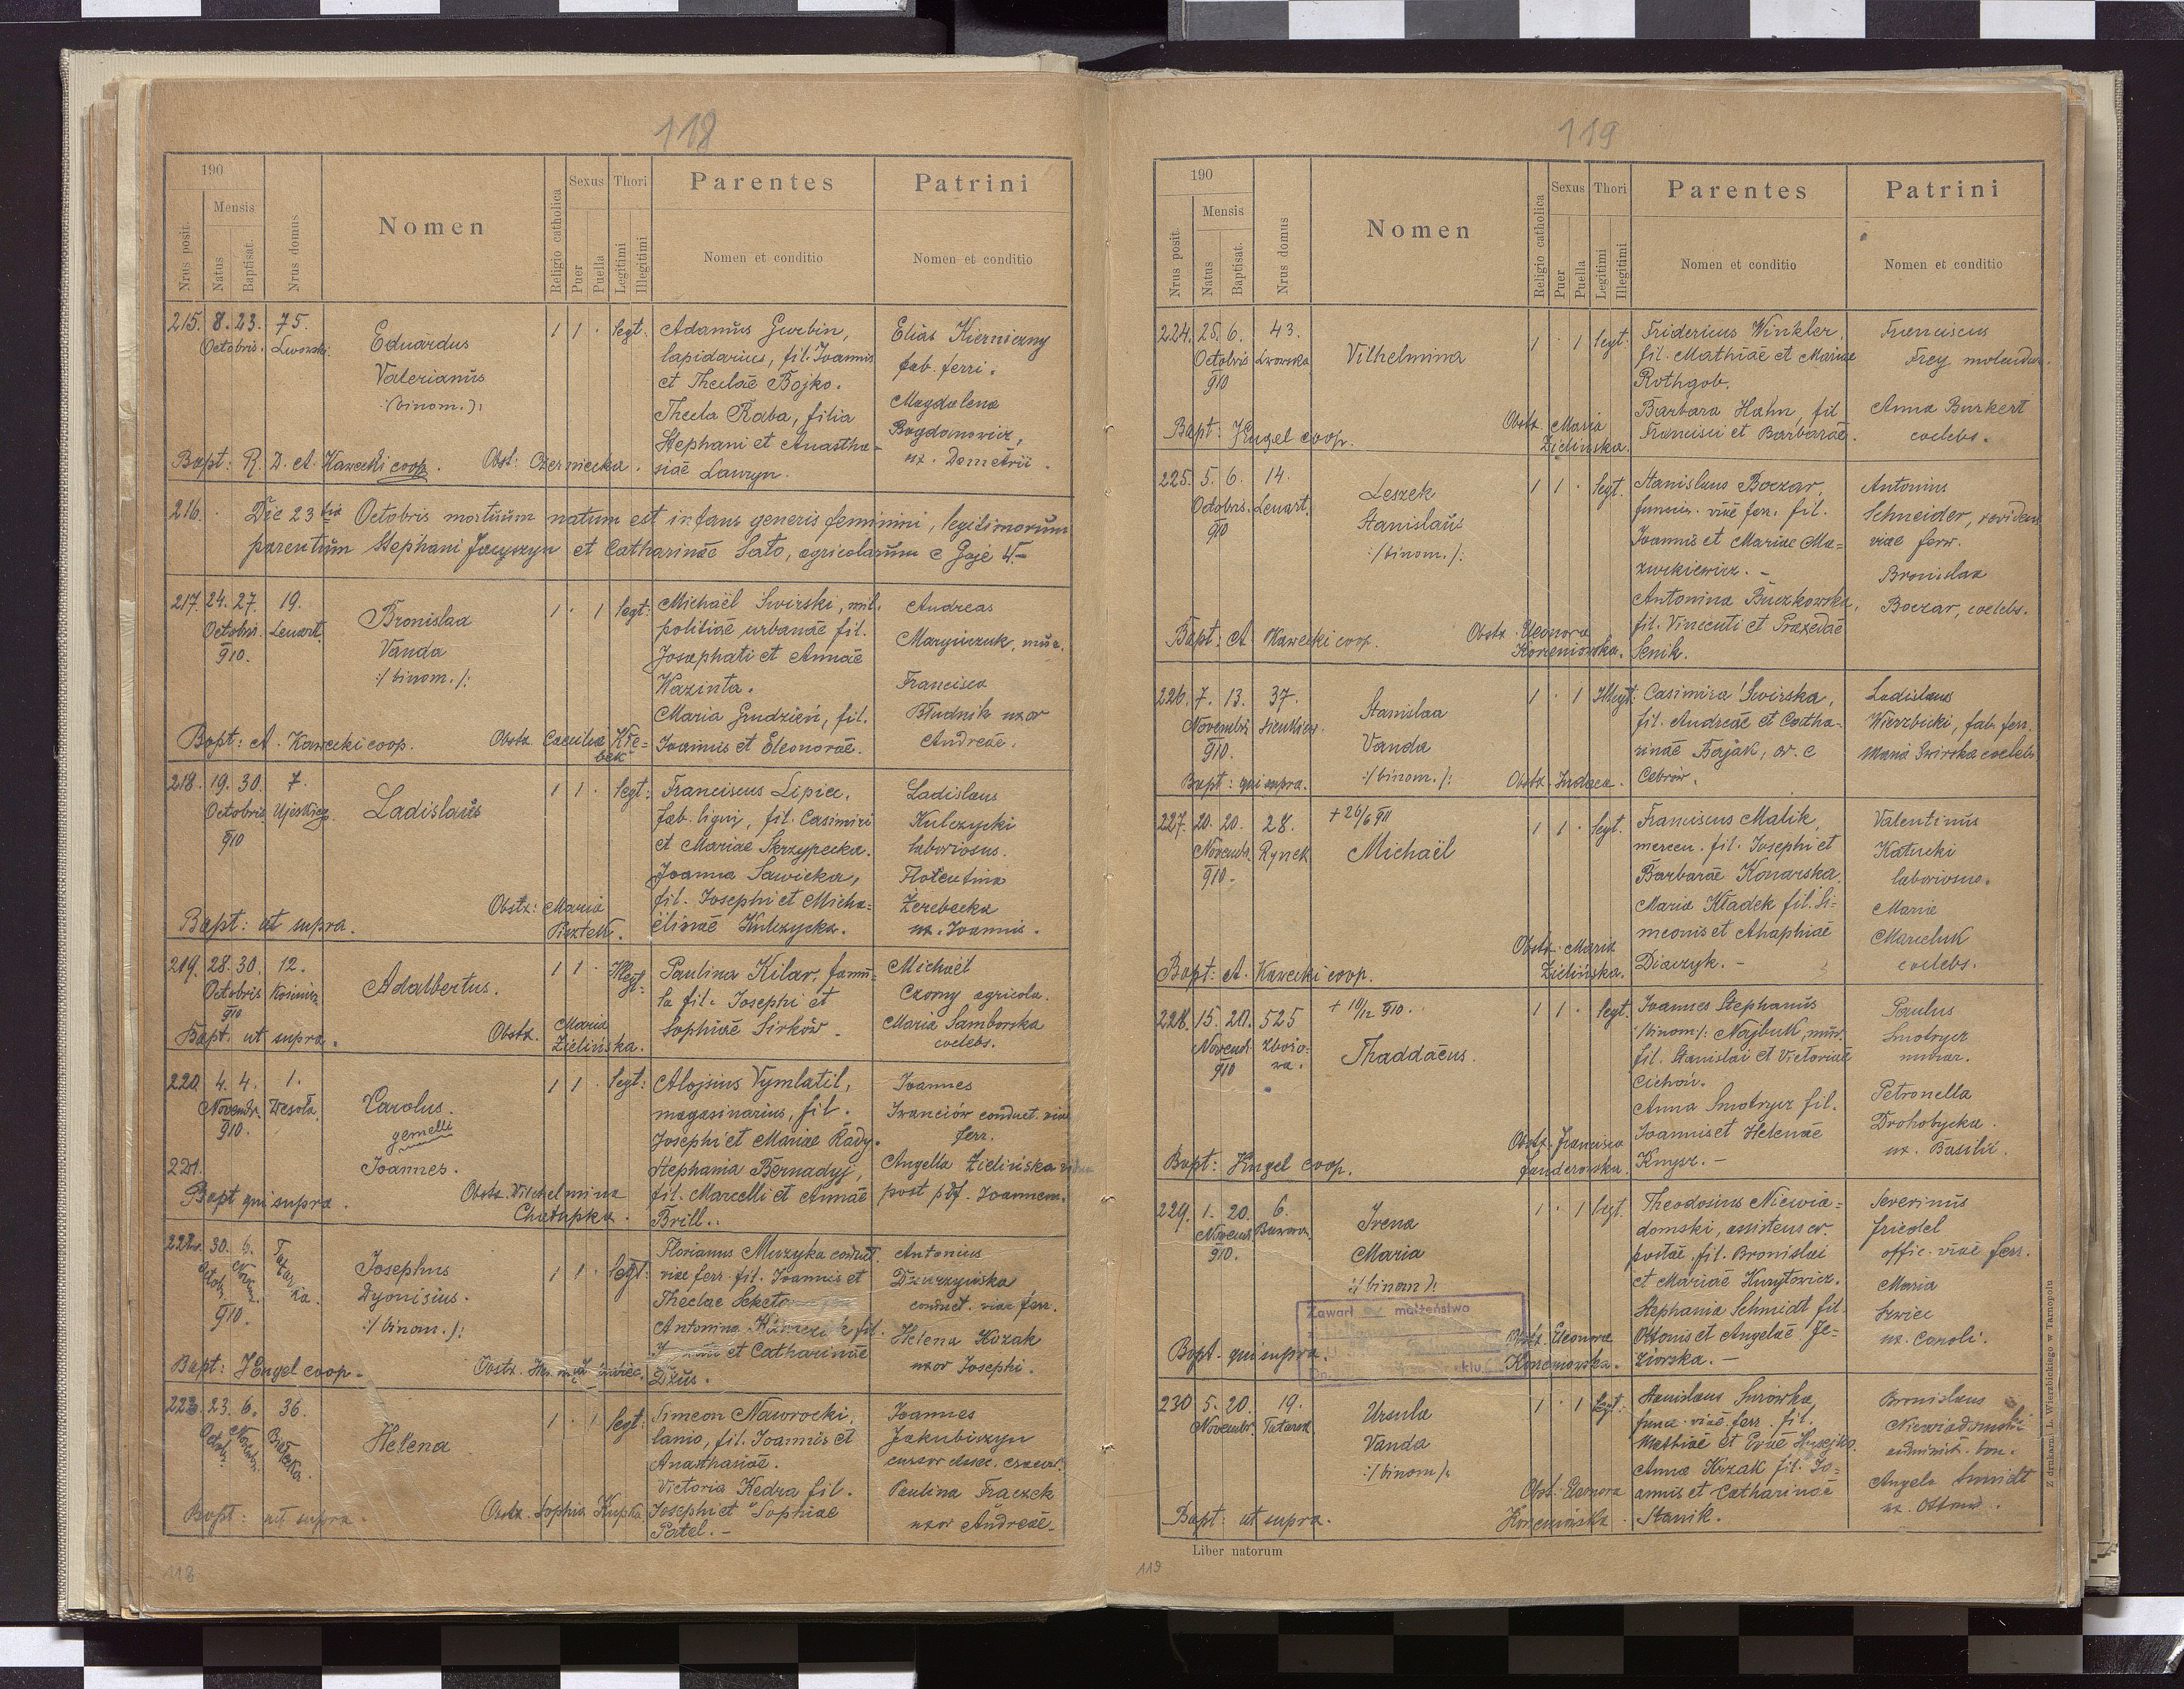 118
190
Nrus posit.
Mensis
Natus
Baptisat.
Nrus domus
Nomen
Religio catholica
Sexus
Puer
Puella
Thori
Legitimi
Illegitimi
Parentes
Nomen et conditio
Patrini
Nomen et conditio
215. 8. 23. 75.
Octobris. Lwowsk.
Eduardus
Valerianus
:/binom.):
1 1 . legt.
Adamus Gurbin,
lapidarius, fil. Joannis
et Theclae Bojko.
Thecla Raba, filia
Stephani et Anastha-
siae Lawryn.
Elias Kierniczny
fab. ferri.
Magdalena
Bogdanowicz,
ux. Demetrii.
Bapt: R. D. A. Kawecki coop. Obst: Czerniecka.
216. Die 23tia Octobris mortuum natum est infans generis feminini, legitimorum
parentum Stephani Jacyszyn et Catharinae Sato, agricolarum e Gaje W-
217. 24. 27. 19.
Octobris. Lenart.
910.
Bronislaa
Vanda
:/binom./:
1 . 1 legt:
Michaël Swirski, mil.
politiae urbanae fil.
Josaphati et Annae
Wazinta.
Maria Grudzień, fil.
Joannis et Eleonorae.
Andreas
Martyńczuk, mur.
Francisca
Błudnik uxor
Andreae.
Bapt: A. Kawecki coop. Obstz. Caecilia Kłe-
bek
218. 19. 30. 7
Octobris Ujeskieg.
910
Ladislaus
1 1 . legt:
Franciscus Lipiec,
fab. ligni, fil. Casimiri
et Mariae Skrzypecka.
Joanna Sawicka,
fil. Josephi et Micha-
ëlinae Kulczycka.
Ladislaus
Kulczycki
laboriosus.
Florentina
Żerebecka
ux. Joannis.
Obstz: Maria
Pisztek.
Bapt: ut supra.
219. 28. 30. 12.
Octobris
910
Adalbertus.
1 1 . Illegt.
Paulina Kilar, famu-
la fil. Josephi et
Sophiae Sirków.
Michaël
Czorny agricola.
Maria Samborska
coelebs.
Bapt. ut supra. Obstz. Maria
Zielińska.
220. 4. 4. 1.
Novembr. Wesoła.
910.
Carolus.
gemelli
221.
Joannes.
1 1 . legt:
Alojsius Vymlatil,
magasinarius, fil.
Josephi et Mariae Rady.
Stephania Bernadyj,
fil. Marcelli et Annae
Brill.
Joannes
Iwanciów conduct. viae
ferr.
Angella Zielińska vidua
post pdf. Joannem.
Bapt qui supra. Obstz. Vilhelmina
Chałupka.
222. 30. 6. Tatarka.
Octob. Novem.
910.
Josephus
Dyonisius.
:/binom./:
1 1 . legt:
Florianus Muzyka conduct.
viae ferr. fil. Joannis et
Theclae Seketa
Antonina fil.
et Catharinae
Dżus.
Antonius
Dzurzyńska
conduct. viae ferr.
Helena Kozak
uxor Josephi.
Bapt: H. Engel coop. Obstz.
223. 23. 6. 36.
Octob. Novembr.
Helena
1 . 1 legt:
Simeon Nawrocki,
lanio, fil. Joannis et
Anasthasiae.
Victoria Kedra fil.
Josephi et Sophiae
Patel.-
Joannes
Jakubiszyn
cursor
Paulina Frączek
uxor Andreae.
Bapt: ut supra. Obstz. Sophia Kupka
118
119
190
Nrus posit.
Mensis
Natus
Baptisat.
Nrus domus
Nomen
Religio catholica
Sexus
Puer
Puella
Thori
Legitimi
Illegitimi
Parentes
Nomen et conditio
Patrini
Nomen et conditio
224. 25. 6. 43.
Octobris Lwowska
910
Vilhelmina
1 . 1 legt:
Fridericus Winkler,
fil. Mathiae et Mariae
Rothgob.
Barbara Hahn, fil
Francisci et Barbarae.
Franciscus
Frey molendin.
Anna Burkert
coelebs.
Bapt: H. Engel coop. Obstz. Maria
Zielińska.
225. 5. 6. 14.
Octobris. Lenart.
910
Leszek
Stanislaus
:/binom./:
1 1 . legt.
Stanislaus Boczar,
func. viae ferr. fil.
Joannis et Mariae Ma-
zurkiewicz. -
Antonina Buczkowska,
fil. Vincenti et Praxedae
Senik.
Antonius
Schneider, reviden
viae ferr.
Bronislaa
Boczar, coelebs.
Bapt: A Kawecki coop. Obstz. Eleonora
Korzeniowska.
226. 7. 13. 37.
Novembr. Sienkiew.
910.
Stanislaa
Vanda
:/binom./:
1 . 1 Illegt:
Casimira Swirska,
fil. Andreae et Catha-
rinae Bojak, or. e
Cebrów.
Ladislaus
Wierzbicki, fab. ferr.
Maria Swirska coelebs
Bapt: qui supra. Obstz. Judaea.
227. 20. 20. 28.
Novembr. Rynek
910-
+ 26/6 911
Michaël
1 1 . legt.
Franciscus Malik,
mercen. fil. Josephi et
Barbarae Konarska.
Maria Kładek fil. Si-
meonis et Ahaphiae
Diaczyk.-
Valentinus
Katucki
laboriosus.
Maria
Marciuk
coelebs.
Bapt: A. Kawecki coop. Obstz. Maria
Zielińska.
228. 15. 20. 525
Novemb. Zboro-
910 wa.
+ 10/12 910.
Thaddaeus.
1 1 . legt.
Joannes Stephanus
:/binom:/: Najbuk, mur.
fil. Stanislai et Victoriae
Cichoń.
Anna Smotrycz fil.
Joannis et Helenae
Kmysz.-
Paulus
Smotrycz
murar.
Petronella
Drohobycka.
ux. Basilii.
Bapt: H. Engel coop. Obstz. Francisca
Janderowska.
229. 1. 20. 6.
Novemb.
910.
Irena
Maria
:/binom):
1 . 1 legt.
Theodosius Niewia-
domski, assistens cr.
postae, fil. Bronislai
et Mariae Kurytowicz.
Stephania Schmidt fil.
Ottonis et Angelae Je-
ziorska.-
Severinus
Friedel
offic. viae ferr.
Maria
Szwiec
ux. Caroli.
Zawarł małżeństwo
Bapt. qui supra. Obstz. Eleonora
Korzeniowska.
230 5. 20. 19.
Novembr. Tatarsk
Ursula
Vanda
:/binom/:
1 . 1 legt:
Stanislaus Surówka,
func. viae ferr. fil.
Mathiae et Evae
Anna Krzak fil. Jo-
annis et Catharinae
Stanik.
Bronislaus
Niewiadomski
administr. bon.
Angela Smidt
ux. Ottonis.
Bapt: ut supra. Obst. Eleonora
Korzeniowska
Liber natorum
Z drukarni L. Wierzbickiego w Tarnopolu
119